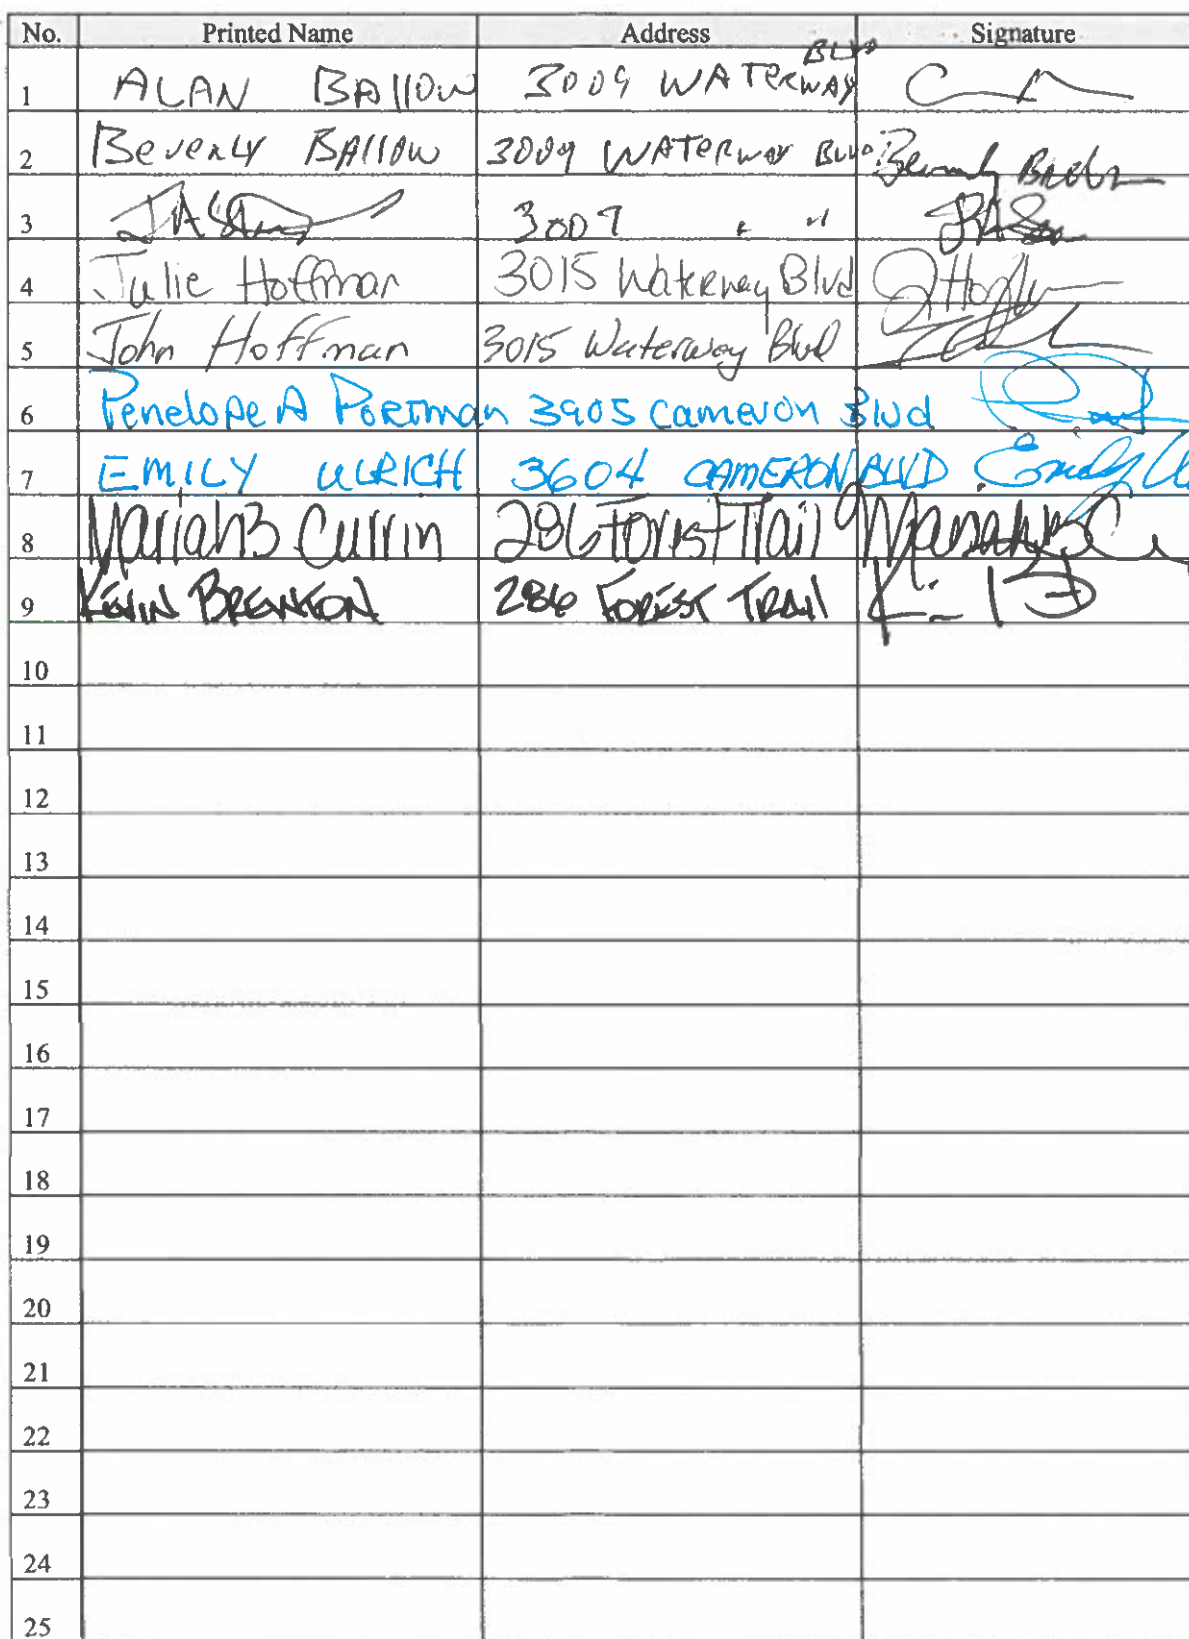 No. Printed Name Address Signature
1 ALAN BALLOW 3009 WATERWAY BLVD
2 Beverly BALLOW 3009 WATERWAY BLVD. Beverly
3 3007 " "
4 Julie Hoffman 3015 Waterway Blvd JHoffman
5 John Hoffman 3015 Waterway Blvd
6 Penelope A Portman 3905 Cameron Blvd
7 EMILY ULRICH 3604 CAMERON BLVD Emily
8 Mariah B Currin 286 Forest Trail Mariah B C
9 KEVIN BRENTON 286 FOREST TRAIL
10
11
12
13
14
15
16
17
18
19
20
21
22
23
24
25